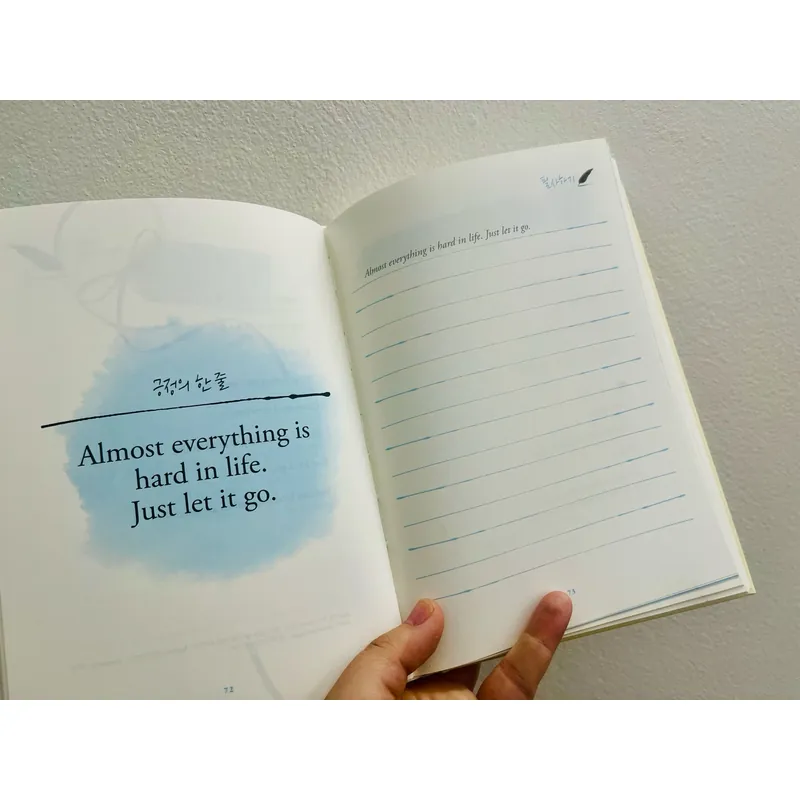 긍정의 한 줄
Almost everything is
hard in life.
Just let it go.
72
필사하기
Almost everything is hard in life. Just let it go.
73